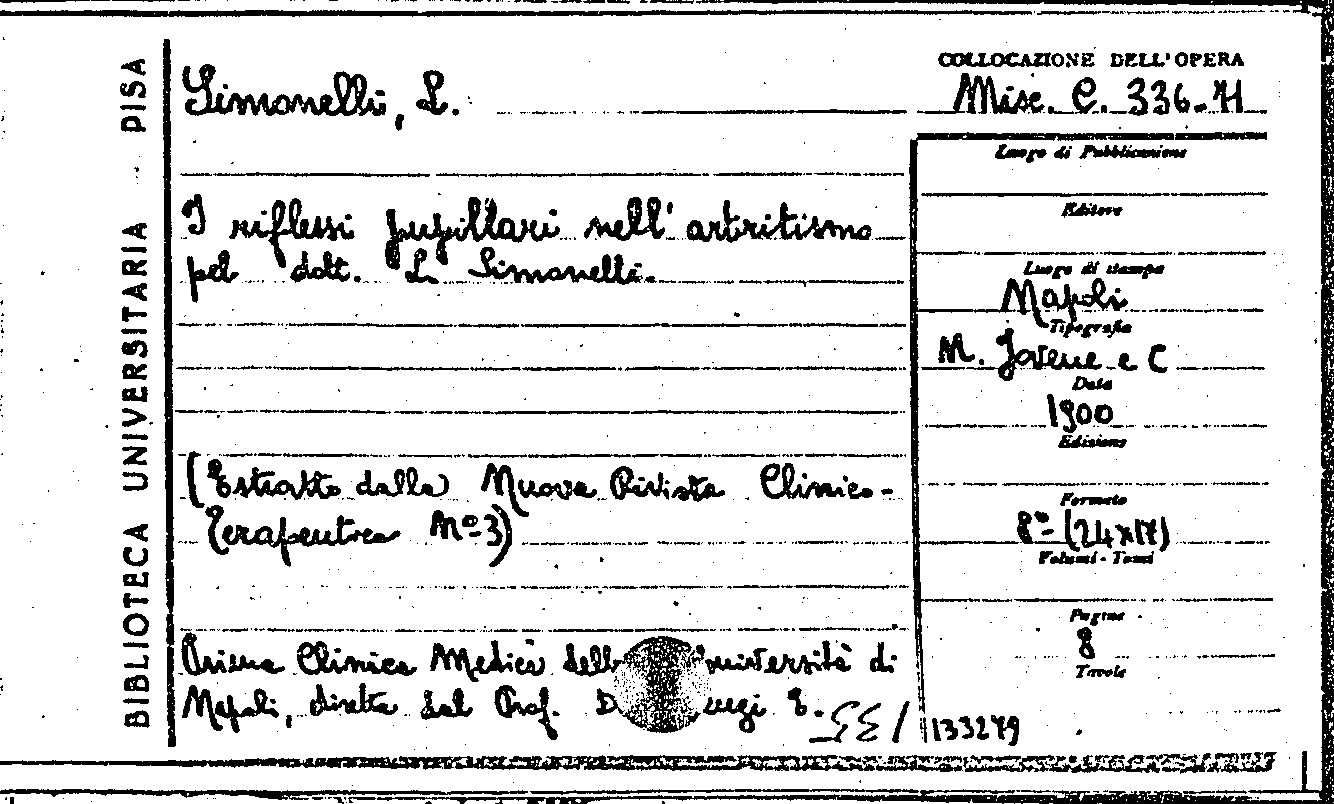 BIBLIOTECA UNIVERSITARIA PISA
Simonelli, L.
I riflessi pupillari nell' artritismo
pel dott. L. Simonelli.
(Estratto dalla Nuova Rivista Clinico-
Terapeutica Nº-3)
Clinica Medica di
Napoli, diretta dal Prof.
COLLOCAZIONE DELL'OPERA
Misc. C. 336-71
Luogo di Pubblicazione
Editore
Luogo di stampa
Napoli
Tipografia
M. Jovene e C
Data
1900
Edizione
Formato
8º-(24x17)
Volumi - Tomi
Pagine
8
Tavole
133279